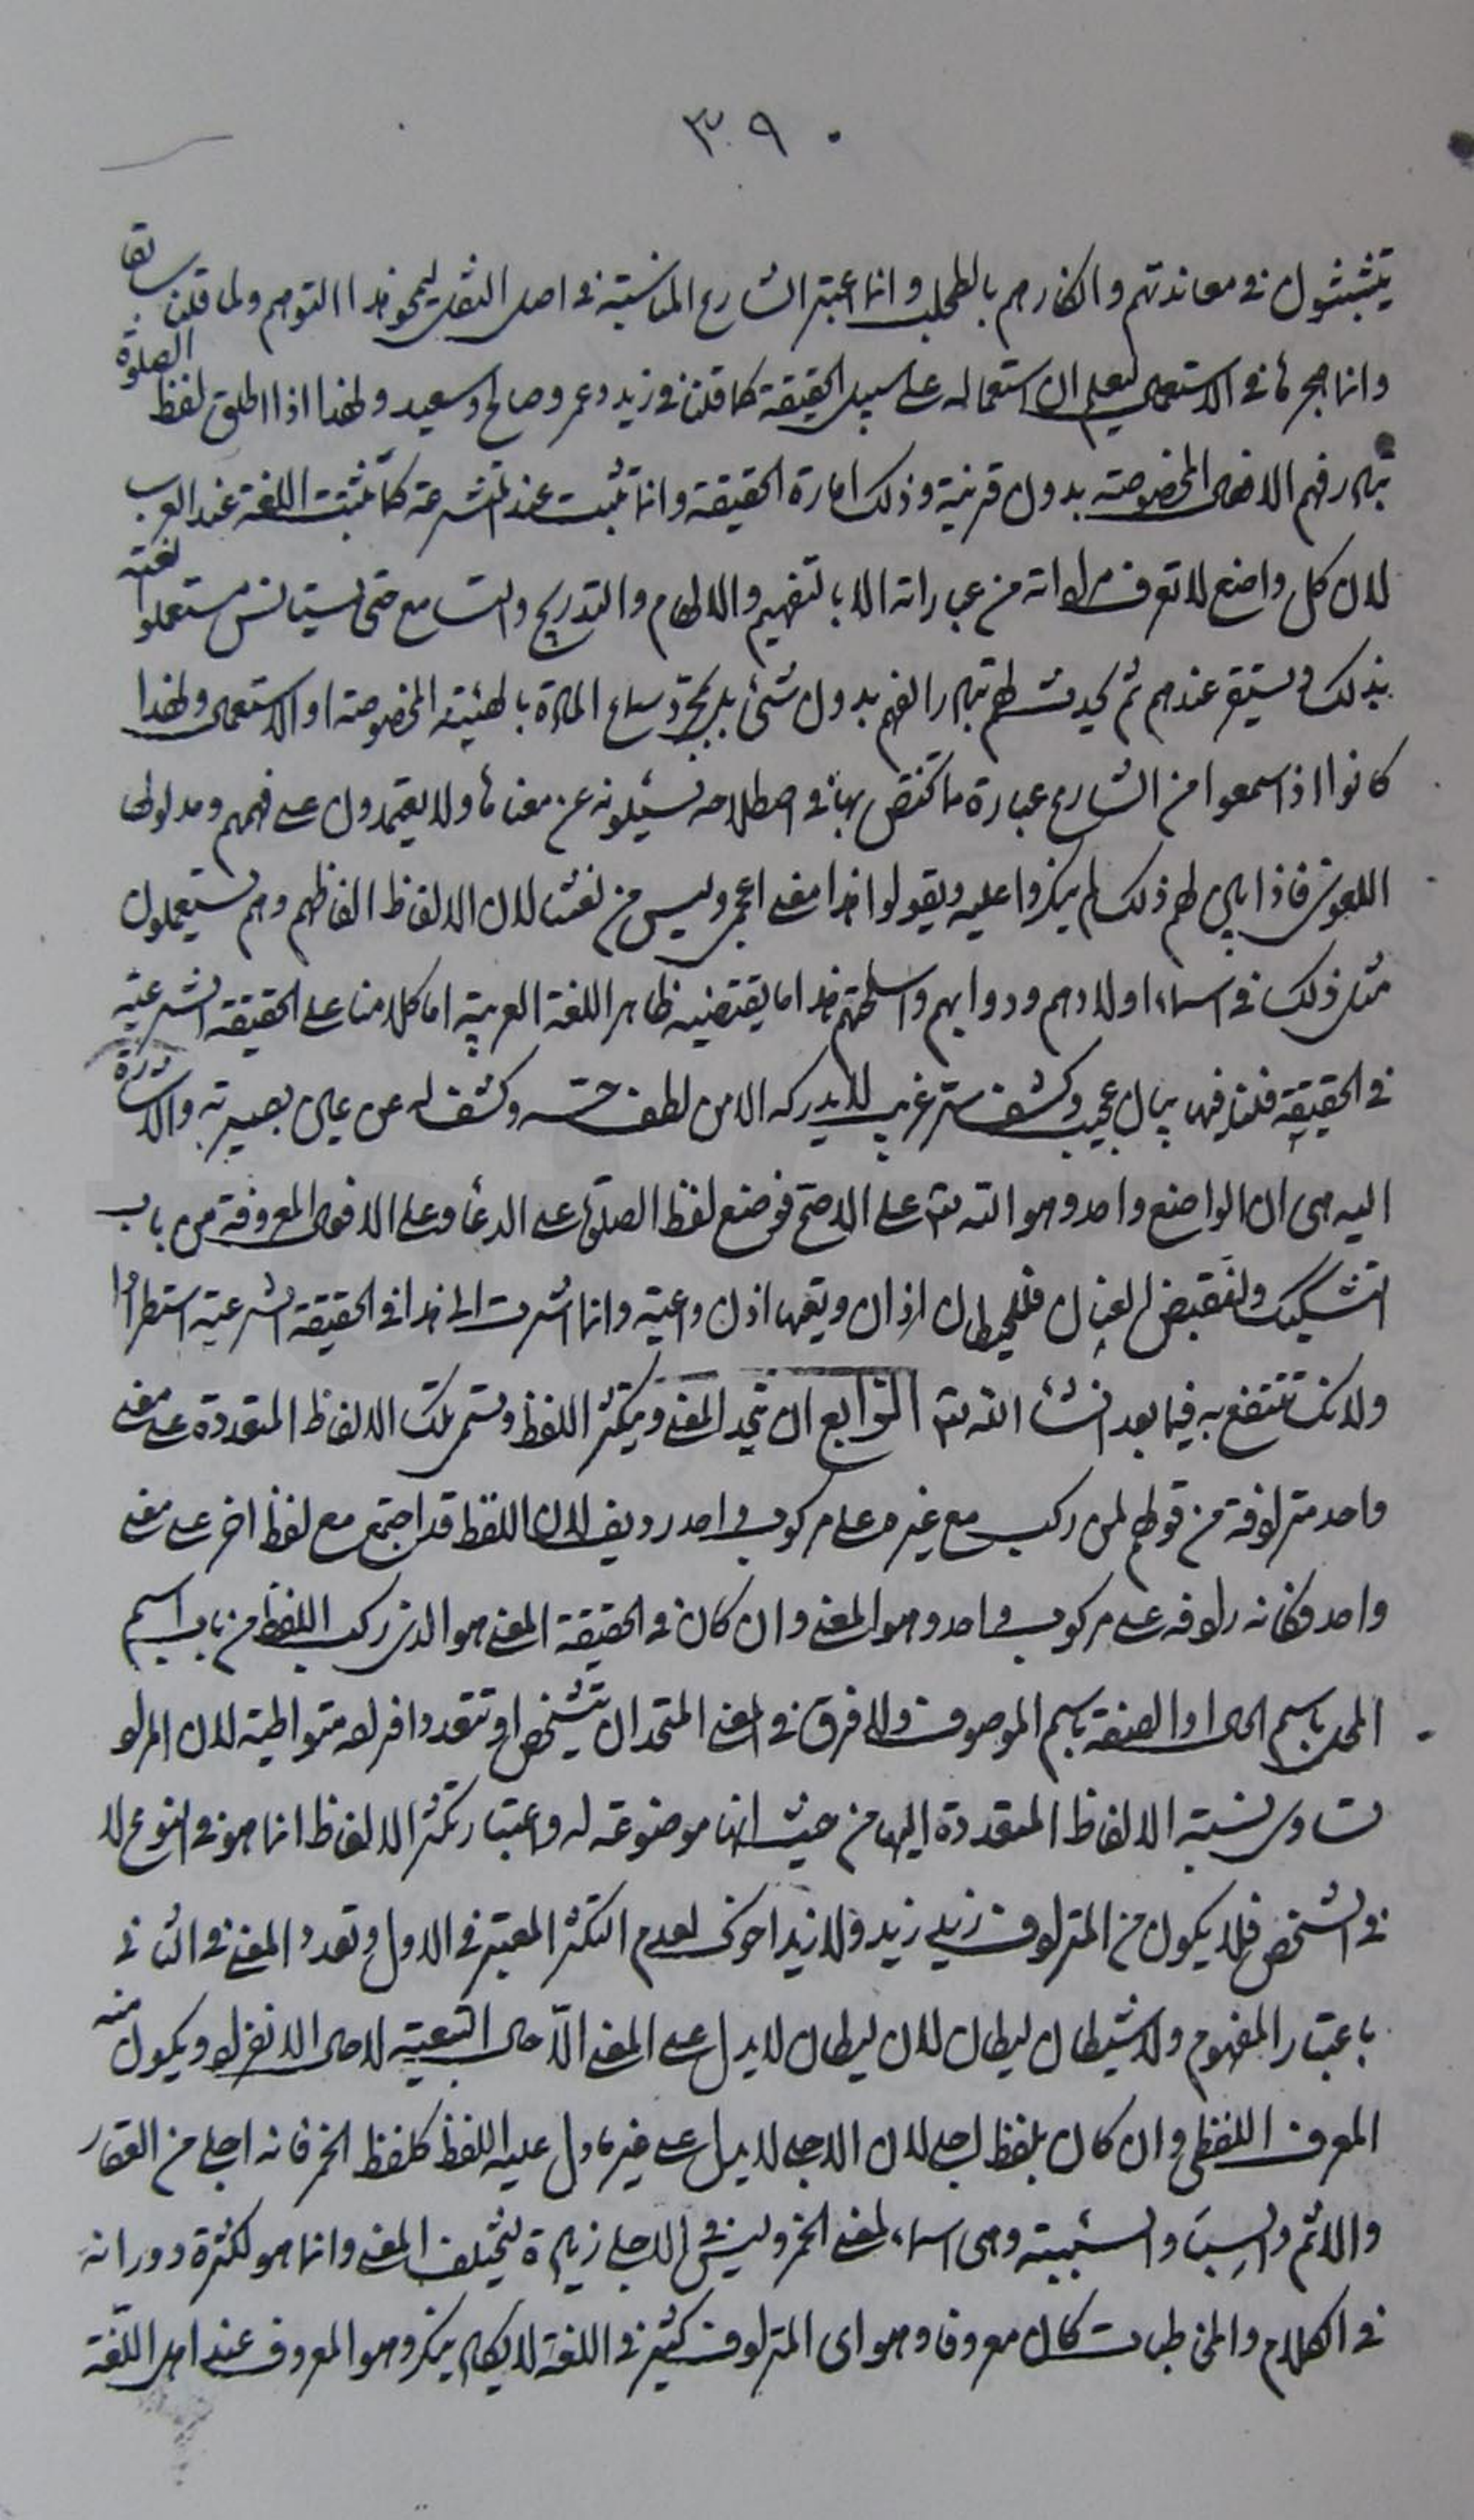 ٣٠٩
يتشبثون في معاندتهم وانكارهم بالطحلب وانما اعتبر الشارع المناسبة في اصل النقل ليمحو هذا التوهم ولما قلنا سابقا
وانما هجرها في الاستعمال ليعلم ان استعماله على سبيل الحقيقة كما قلنا في زيد وعمرو صالح وسعيد ولهذا اذا اطلق لفظ الصلوة
تبادر فهم الافعال المخصوصة بدون قرينة وذلك امارة الحقيقة وانما تثبت عند المتشرعة كما تثبت اللغة عند العرب
لان كل واضع لا تعرف مراداته من عباراته الا بالتفهيم والالهام والتدريج والتسامع حتى يستيانس مستعملوا لغته
بذلك ويستقر عندهم ثم يحدث لهم تبادر الفهم بدون شئ بل بمجرد سماع المادة بالهيئة المخصوصة او الاستعمال ولهذا
كانوا اذا سمعوا من الشارع عبارة ما تختص بها في اصطلاحه يسئلونه عن معناها ولا يعتمدون على فهمهم ومدلولها
اللغوي فاذا بين لهم ذلك لم ينكروا عليه ويقولوا هذا معنى اعجمي وليس من لغتنا لان الالفاظ الفاظهم وهم يستعملون
مثل ذلك في اسماء اولادهم ودوابهم واسلحتهم هذا ما يقتضيه ظاهر اللغة العربية اما كلامنا على الحقيقة الشرعية
في الحقيقة فلنا فيها بيان عجيب وكشف ستر غريب لا يدركه الا من لطف حسه وكشف له عن عيان بصيرته والاشارة
اليه هي ان الواضع واحد وهو الله تعالى على الاصح فوضع لفظ الصلوة على الدعاء وعلى الافعال المعروفة من باب
التشكيك ولنقبض العنان فللحيطان اذان وتعيها اذن واعية وانما اشرت الى هذا في الحقيقة الشرعية استطرادا
ولانك تنتفع به فيما بعد انشاء الله تعالى الرابع ان يتحد المعنى ويتكثر اللفظ وتسمى تلك الالفاظ المتعددة على معنى
واحد مترادفة من قولهم لمن ركب مع غيره على مركوب واحد رديف لان اللفظ قد اجتمع مع لفظ اخر على معنى
واحد فكانه رادفه على مركوب واحد وهو المعنى وان كان في الحقيقة المعنى هو الذي ركب اللفظ من باب اسم
المحل باسم الحال او الصفة باسم الموصوف ولا فرق في المعنى المتحد ان يتشخص او تتعدد افراده متواطية لان المراد
تساوي نسبة الالفاظ المتعددة اليها من حيث انها موضوعة له واعتبار تكثر الالفاظ انما هو في النوع لا
في الشخص فلا يكون من المترادف زيد زيد ولا زيد اخوك لعدم التكثر المعتبر في الاول وتعدد المعنى في الثاني
باعتبار المفهوم ولا شيطان ليطان لان ليطان لا يدل على المعنى الا حال التبعية لا حال الانفراد ويكون منه
المعرف اللفظي وان كان بلفظ اجلى لان الاجلى لا يدل على غير ما دل عليه اللفظ كلفظ الخمر فانه اجلى من العقار
والاثم وهي اسماء لمعنى الخمر وليس في الاجلى زيادة ليختلف المعنى وانما هو لكثرة دورانه
في الكلام والمخاطبات كان معروفا وهو اي المترادف كثير في اللغة لا يكاد ينكر وهو المعروف عند اهل اللغة